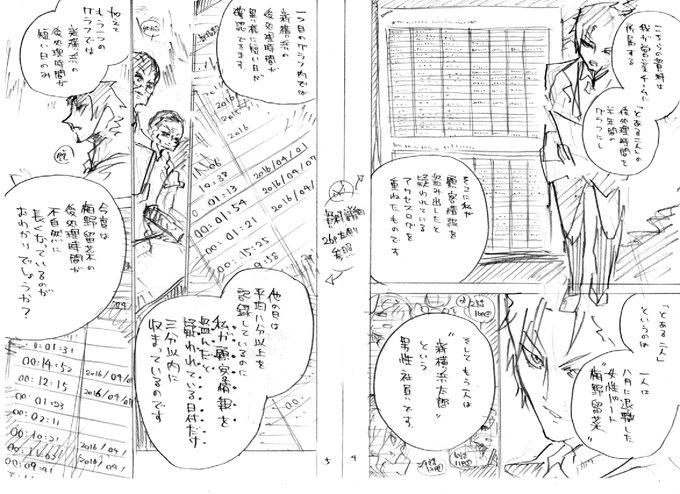 こちらの資料は
我が営業チームに
所属する
「とある二人」の
後処理時間を
半年間の
グラフにし
そこに私が
顧客情報を
盗み出したと
疑われている
アクセスログを
重ねたものです
「とある二人」
というのは
一人は
八月に退職した
女性パート
“梅野留菜”
そしてもう一人は
“新横浜太郎”
という
男性社員です。
4
参照
5
一つ目のグラフ内では
新横浜の
後処理時間が
異様に短い日が
確認できます。
2016
2016
2016/04/01
10:38 2016/04/07
01:13 2016/04/
00:01:54
00:01:21
00:15:25
9:58
他の日は
平均八分以上を
記録しているのに
私が顧客情報を
盗んだと
疑われている日付だけ
三分以内に
収まっているのです
加えて
もう一つの
グラフでは
新横浜の
後処理時間が
短い日のみ
今度は
梅野留菜の
後処理時間が
不自然に
長くなっているのが
おわかりでしょうか？
0:01:31
00:14:52 2016/04/0
00:12:15 2016/04/01
00:01:23
00:02:11
00:10:21 2016/04/
2016/04/
00:09:41